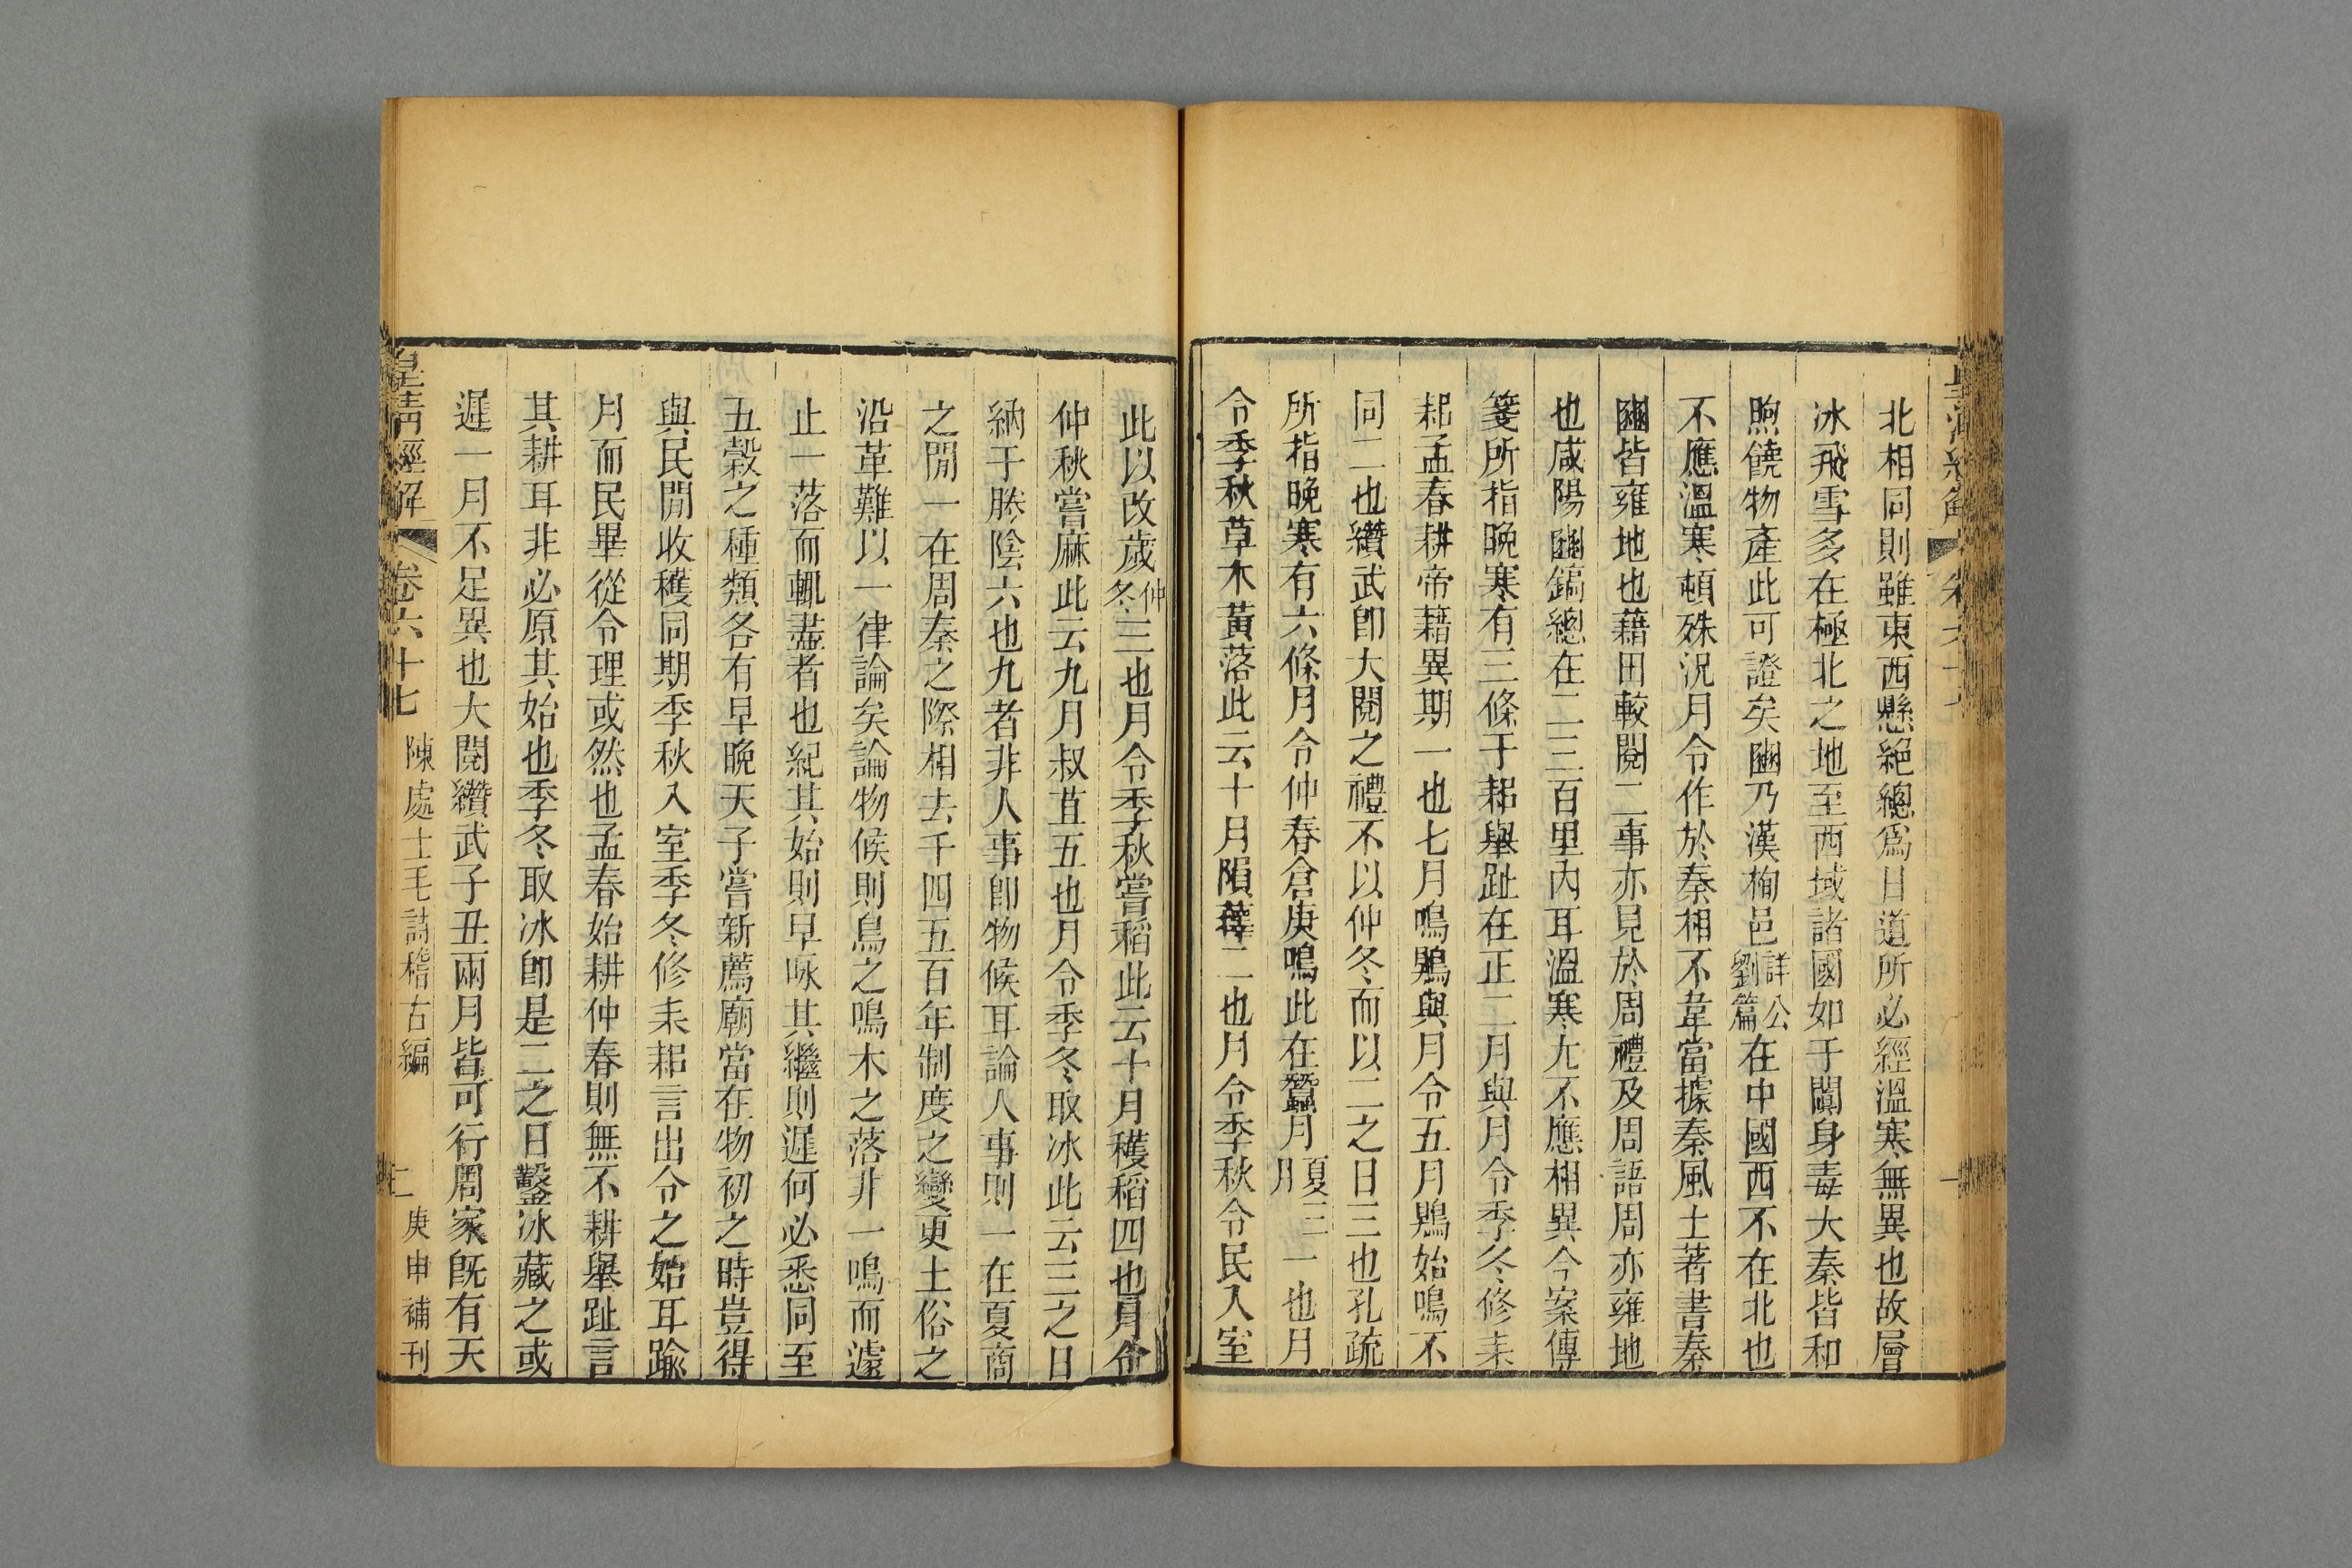 北相同則雖東西懸絕總爲日道所必經溫寒無異也故層
冰飛雪多在極北之地至西域諸國如于闐身毒大秦皆和
煦饒物產此可證矣豳乃漢栒邑詳公劉篇在中國西不在北也
不應溫寒頓殊況月令作於秦相不韋當據秦風土著書秦
豳皆雍地也藉田較閱二事亦見於周禮及周語周亦雍地
也咸陽豳鎬總在二三百里內耳溫寒尢不應相異今案傳
箋所指晚寒有三條于耜舉趾在正二月與月令季冬修耒
耜孟春耕帝藉異期一也七月鳴鵙與月令五月鵙始鳴不
同二也纘武卽大閱之禮不以仲冬而以二之日三也孔疏
所指晚寒有六條月令仲春倉庚鳴此在蠶月夏三月一也月
令季秋草木黃落此云十月隕蘀二也月令季秋令民入室
此以改歲仲冬三也月令季秋嘗稻此云十月穫稻四也月令
仲秋嘗麻此云九月叔苴五也月令季冬取冰此云三之日
納于陵陰六也九者非人事卽物候耳論人事則一在夏商
之閒一在周秦之際相去千四五百年制度之變更土俗之
沿革難以一律論矣論物候則鳥之鳴木之落非一鳴而遽
止一落而輒盡者也紀其始則早咏其繼則遲何必悉同至
五穀之種類各有早晚天子嘗新薦廟當在物初之時豈得
與民閒收穫同期季秋入室季冬修耒耜言出令之始耳踰
月而民畢從令理或然也孟春始耕仲春則無不耕舉趾言
其耕耳非必原其始也季冬取冰卽是二之日鑿冰藏之或
遲一月不足異也大閱纘武子丑兩月皆可行周家旣有天
皇清經解 卷六十七 陳處士毛詩稽古編 二 庚申補刊